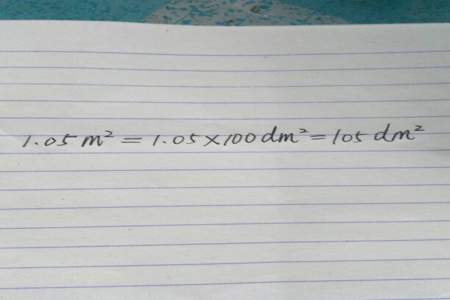 1.05 m² = 1.05×100 dm² = 105 dm²